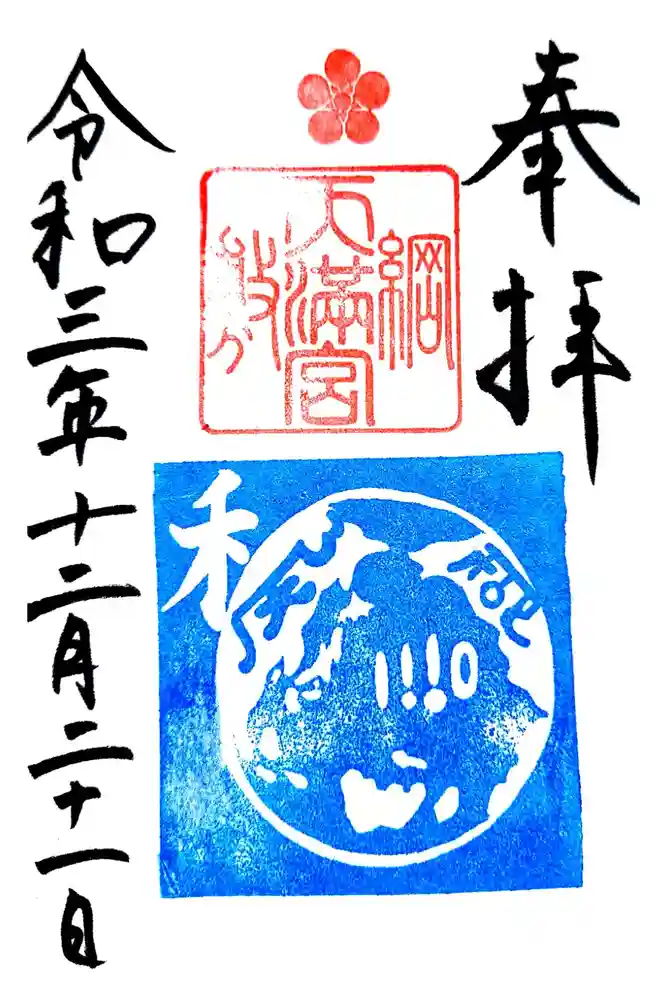 奉拝
綱
天満宮
敷
令和三年十二月二十一日